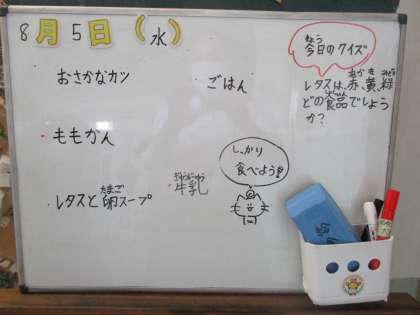 8月5日(水)
おさかなカツ
ごはん
ももかん
レタスと卵スープ
たまご
牛乳
ぎゅうにゅう
しっかり
食べよう
きょう
今日のクイズ
あか き みどり
レタスは、赤、黄、緑
どの食品でしょう
か?